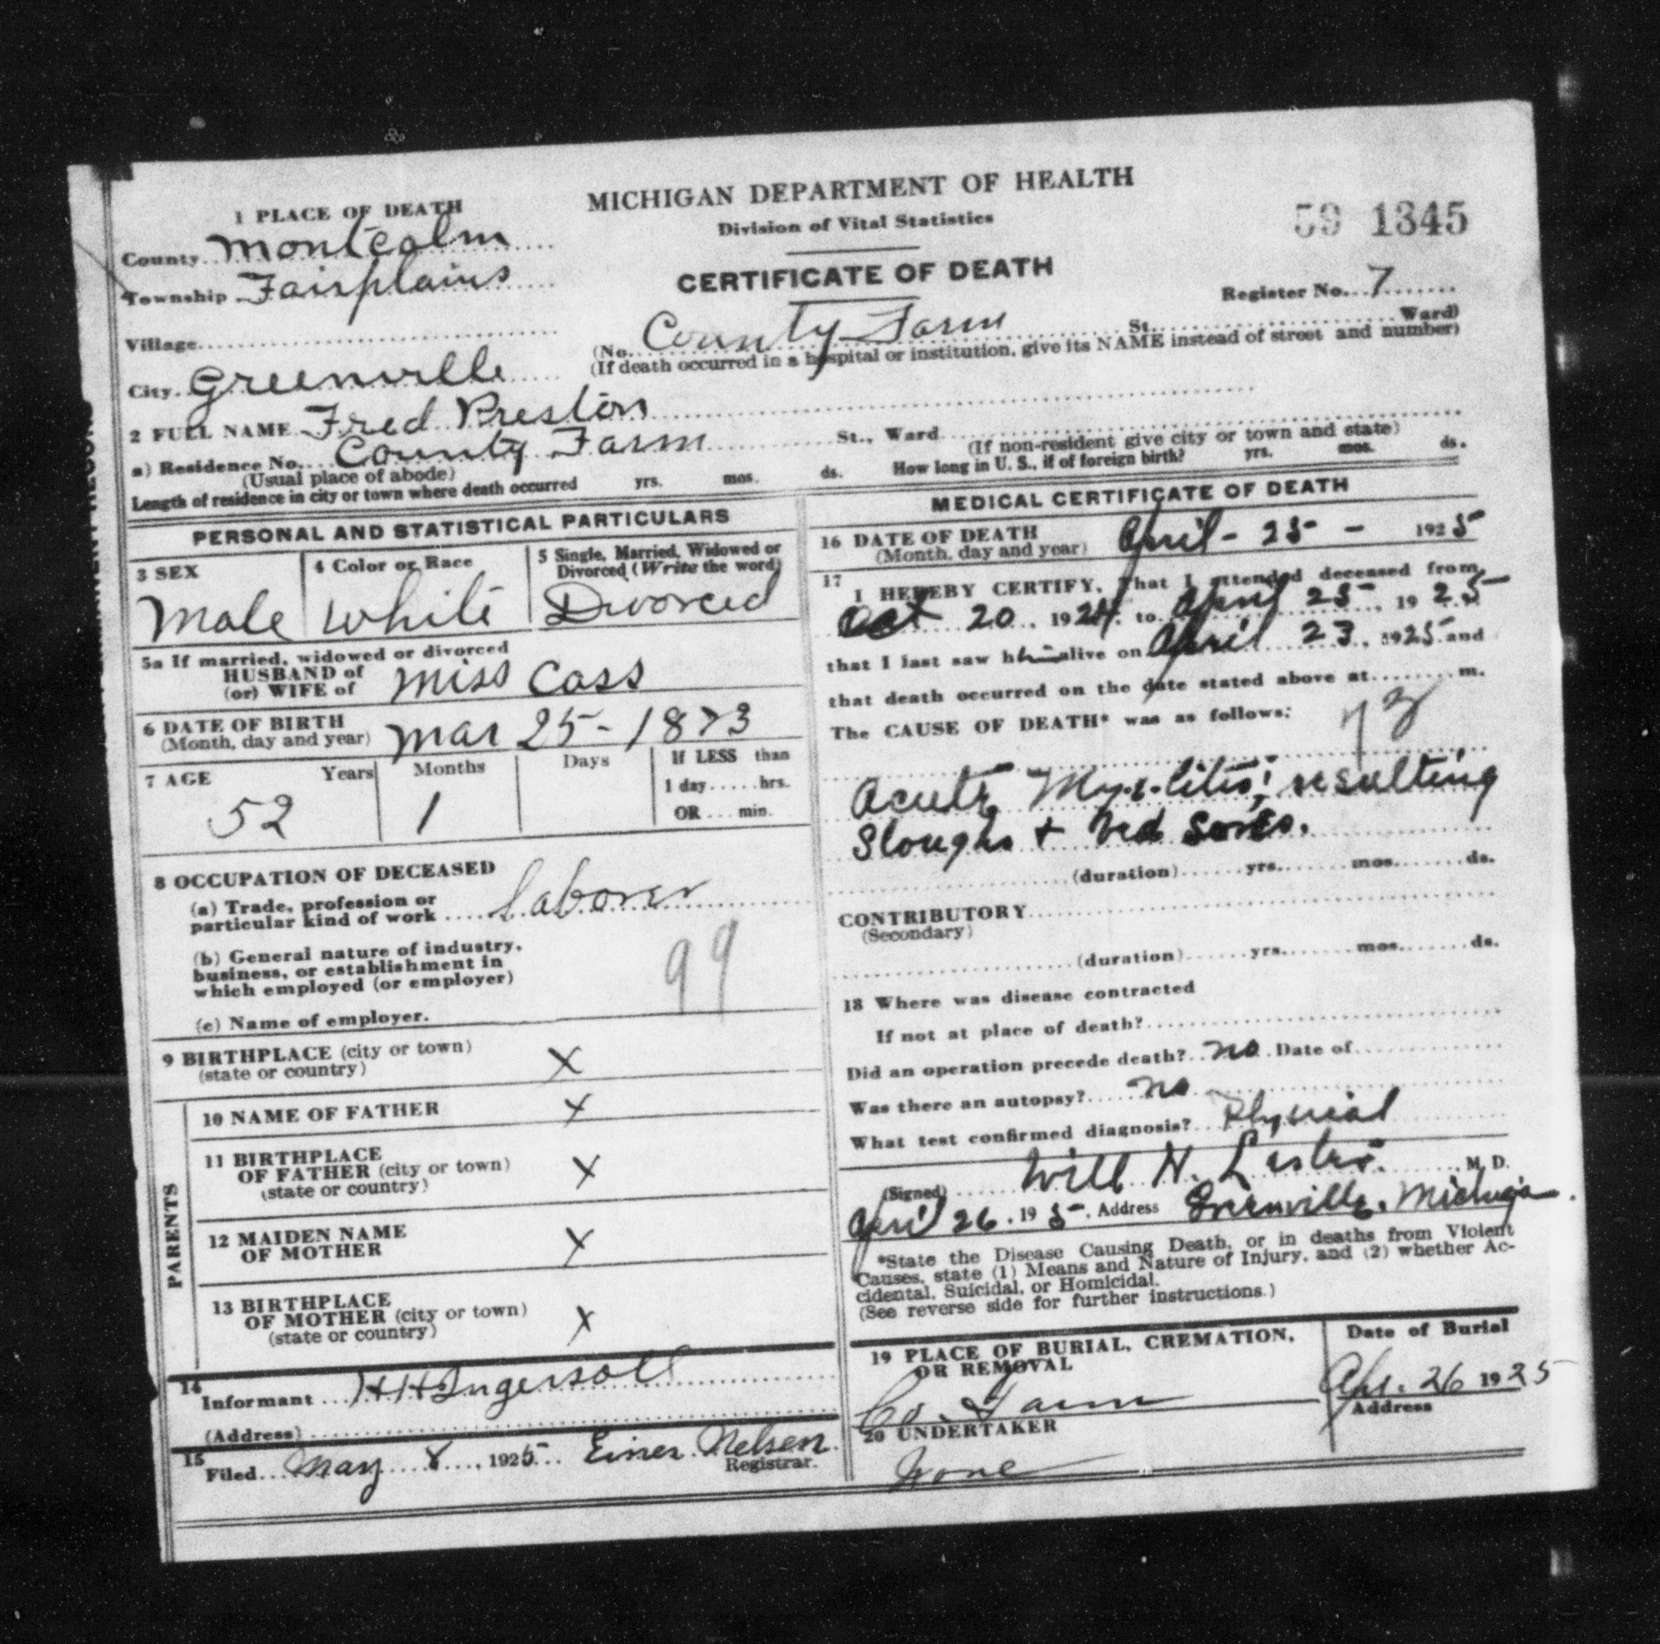 MICHIGAN DEPARTMENT OF HEALTH
Division of Vital Statistics
59 1345
CERTIFICATE OF DEATH
1 PLACE OF DEATH
County Montcalm
Township Fairplains
Register No. 7
Village
(No. County Farm St. Ward)
(If death occurred in a hospital or institution, give its NAME instead of street and number)
City Greenville
2 FULL NAME Fred Preston
a) Residence No. County Farm St., Ward
(Usual place of abode) (If non-resident give city or town and state)
Length of residence in city or town where death occurred yrs. mos. ds. How long in U. S., if of foreign birth? yrs. mos. ds.
PERSONAL AND STATISTICAL PARTICULARS
3 SEX
Male
4 Color or Race
White
5 Single, Married, Widowed or
Divorced (Write the word)
Divorced
5a If married, widowed or divorced
HUSBAND of
(or) WIFE of Miss Cass
6 DATE OF BIRTH
(Month, day and year) Mar 25 - 1873
7 AGE Years Months Days If LESS than
1 day hrs.
OR min.
52 1
8 OCCUPATION OF DECEASED
(a) Trade, profession or
particular kind of work laborer
(b) General nature of industry,
business, or establishment in
which employed (or employer)
99
(c) Name of employer.
9 BIRTHPLACE (city or town)
(state or country) X
PARENTS
10 NAME OF FATHER X
11 BIRTHPLACE
OF FATHER (city or town) X
(state or country)
12 MAIDEN NAME
OF MOTHER X
13 BIRTHPLACE
OF MOTHER (city or town) X
(state or country)
14
Informant HH Ingersoll
(Address)
15
Filed May 8, 1925 Einer Nelsen
Registrar.
MEDICAL CERTIFICATE OF DEATH
16 DATE OF DEATH
(Month, day and year) April - 25 - 1925
17
I HEREBY CERTIFY, That I attended deceased from
Oct 20, 1924 to April 25, 1925
that I last saw him alive on April 23, 1925 and
that death occurred on the date stated above at m.
The CAUSE OF DEATH* was as follows:
73
Acute Myelitis; resulting
Sloughs + bed sores.
(duration) yrs. mos. ds.
CONTRIBUTORY
(Secondary)
(duration) yrs. mos. ds.
18 Where was disease contracted
If not at place of death?
Did an operation precede death? no Date of
Was there an autopsy? no
What test confirmed diagnosis? Physical
(Signed) Will H. M. D.
April 26, 195, Address Greenville, Michigan.
*State the Disease Causing Death, or in deaths from Violent
Causes, state (1) Means and Nature of Injury, and (2) whether Ac-
cidental, Suicidal, or Homicidal.
(See reverse side for further instructions.)
19 PLACE OF BURIAL, CREMATION,
OR REMOVAL
Co. Farm
Date of Burial
Apr. 26 1925
20 UNDERTAKER
None
Address